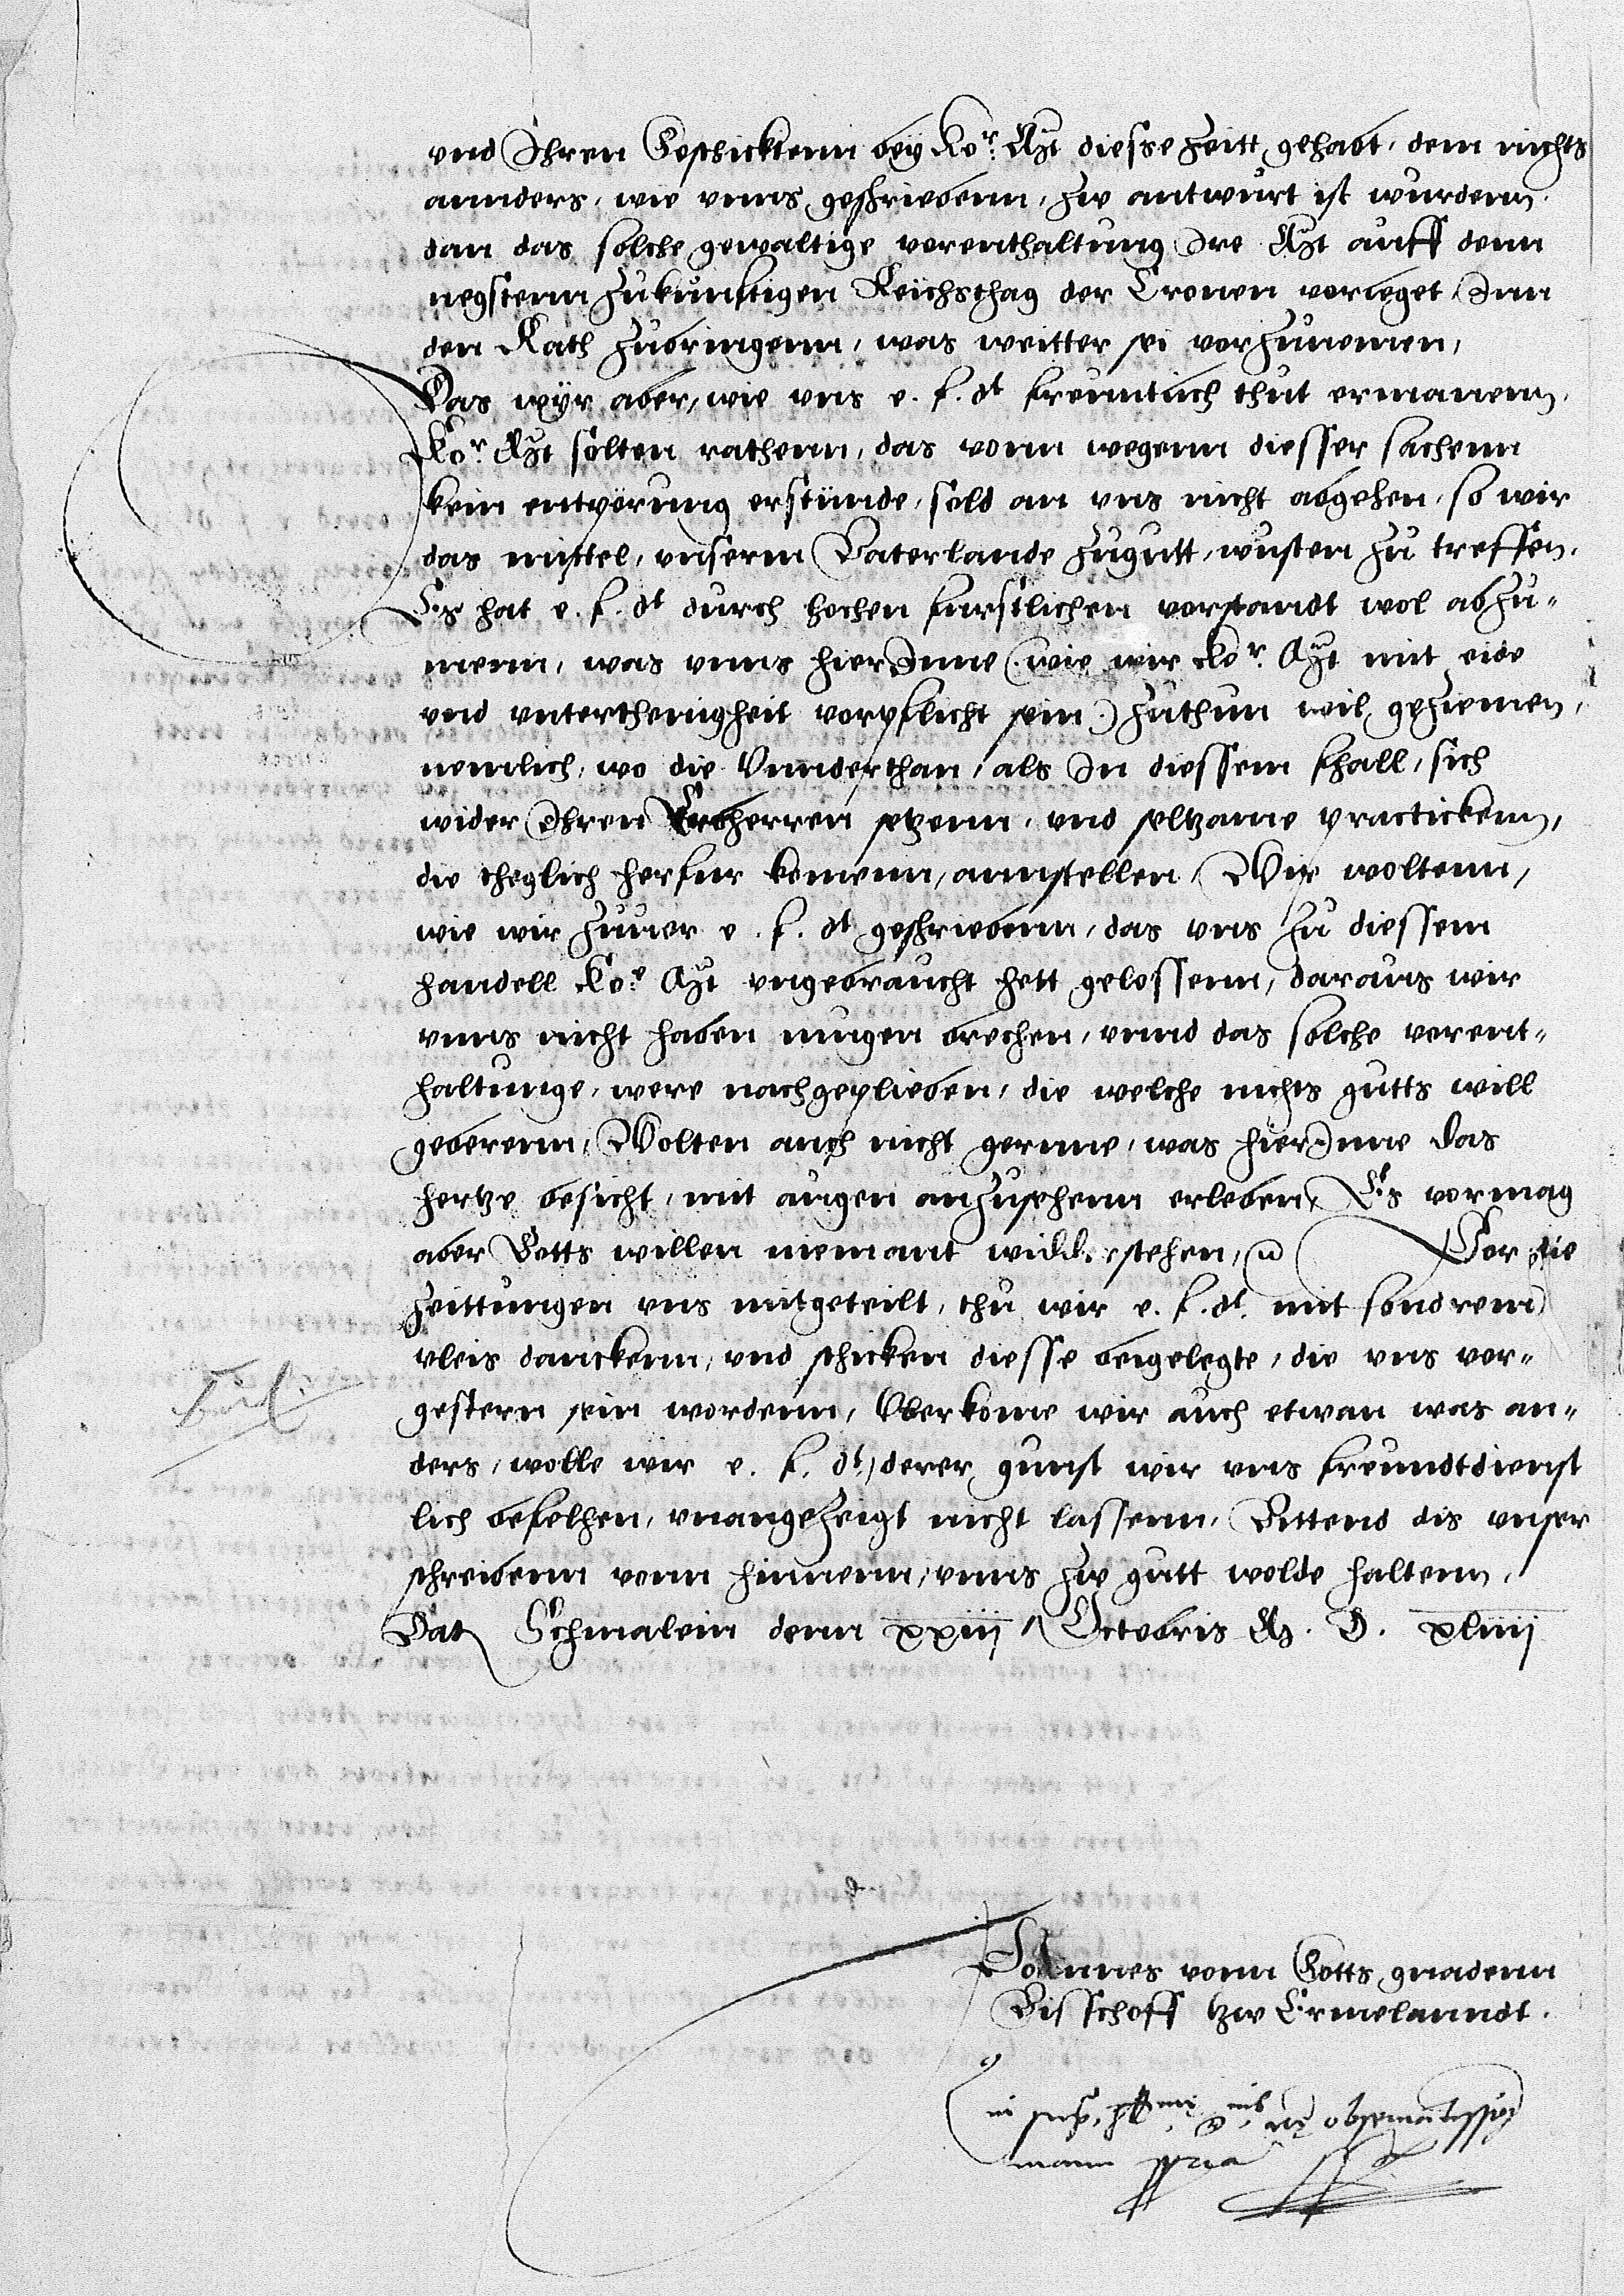 vnd Ihren Geschicktenn bey Kor. Mt diesse zeitt gehabt, dem nichts
annders, wie vnns geschriebenn, zw antwurt ist wurdenn.
dan das solche gewaltige vorenthaltung Ire Mt auff denn
negstenn zukunftigen Reichsthag der Cronen vorleget, Inn
den Rath zubringenn, was weitter sei vorzunemen,
Das wyr aber, wie vns e. f. dt freuntlich thut ermanenn,
Kor. Mt solten rathenn, das vonn wegenn diesser sachenn
kein entpörung erstünde, sold an vns nicht abgehen, so wir
das mittel, vnserm Vaterlande zugutt, wusten zu treffen.
Es hat e. f. dt durch hochen furstlichen vorstandt wol abzu-
nemen, was vnns hierInne (wie wir Kor. Mt mit eide
vnd vnterthenigheit vorpflicht sein.) zuthun wil geziemen,
nemlich, wo die Vnnderthan, als In diessem fhall, sich
wider Ihren Erbherren setzenn, vnd seltzame practickenn,
die theglich herfur komenn, annstellen, Wir woltenn,
wie wir zuuor e. f. dt geschriebenn, das vns zu diessem
handell Koe. Mt vngebraucht hett gelossenn, daraus wir
vnns nicht haben mugen brechen, vnnd das solche vorent-
haltunge, were nachgeplieben, die welche nichts gutts will
geberenn, Wolten auch nicht gernne, was hierInne das
hertze besicht, mit augen anzusehenn erleben, Es vormag
aber Gotts willen niemant widderstehen, Vor die
Zeittungen vns mitgeteilt, thu wir e. f. dt. mit sondrem
vleis danckenn, vnd schicken diesse beigelegte, die vns vor-
gestern sein wordenn, Vberkome wir auch etwan was an-
ders, wolle wir e. f. dt, derer gunst wir vns freundtdienst
lich befelhen, vnangezeigt nicht lassenn, Bittend dis vnser
schreibenn vonn hinnenn, vnns zw gutt wolde haltenn,
Dat Schmalein denn xxiij Octobris M. D. xliiij
Joannes vonn Gotts gnadenn
Bisschoff tzw Ermelanndt.
manu ppria